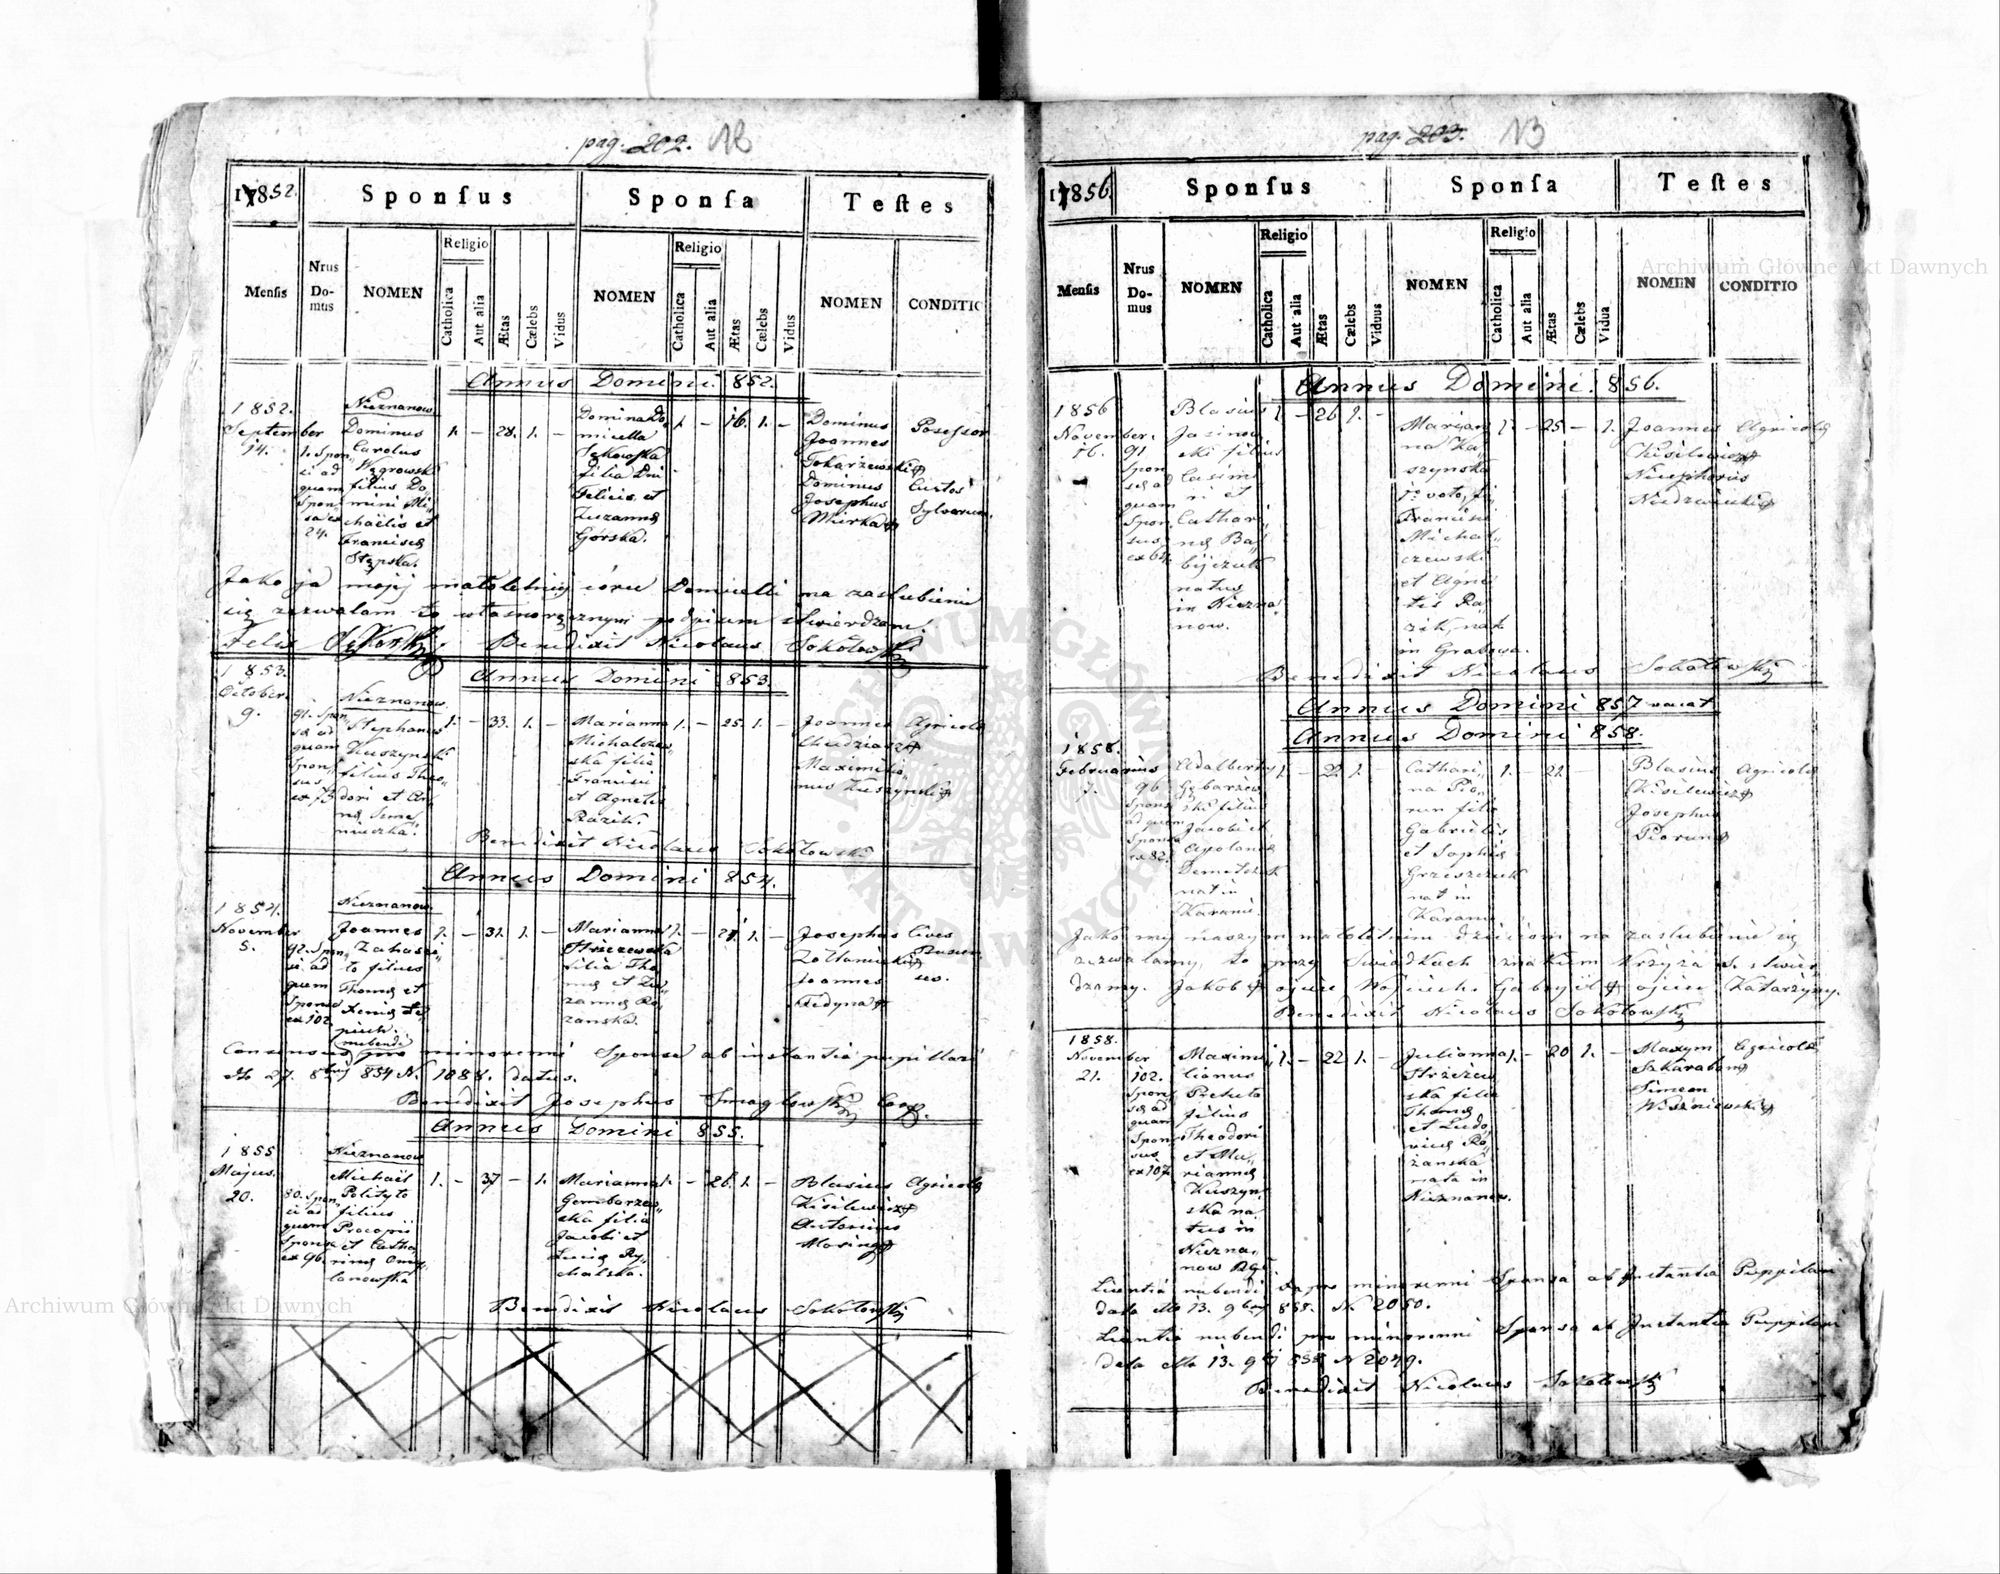 pag. 202.
1852.
Sponſus
Sponſa
Teſtes
Menſis
Nrus Do-mus
NOMEN
Religio
Catholica
Aut alia
Ætas
Cælebs
Vidus
NOMEN
Religio
Catholica
Aut alia
Ætas
Cælebs
Vidus
NOMEN
CONDITIO
Annus Domini 852.
1852.
September
14.
1. Spon
si ad
quam
Spon
sa ex
24.
Nieznanow
Dominus
Carolus
Węgrowski
filius Do
mini Mi
chaëlis et
Franciscæ
Stępska.
1. – 28. 1. –
Domina Do
micella
Sękowska
filia Dni
Felicis et
Zuzannæ
Górska.
1. – 16. 1. –
Dominus
Joannes
Tokarzewski
Dominus
Josephus
Mirka
Posessor
Custos
Sylvarum.
Jako ja mojej małoletniej córce Domicelli na zaslubienie
się zezwalam to własnoręcznym podpisem stwierdzam.
Felix Sękowski Benedixit Nicolaus Sokołowski
Annus Domini 853.
1853.
October
9.
91. Spon
sæ ad
quam
Spon
sus
ex 73
Nieznanow.
Stephanus
Kuszynski
filius Theo
dori et An
næ Seme
niuczka.
1. – 33. 1. –
Marianna
Michalczew
ska filia
Francisci
et Agnetis
Razik.
1. – 25. 1. –
Joannes
Chudziasz
Maximilia
nus Kuszynski
Agricolæ
Benedixit Nicolaus Sokołowski
Annus Domini 854.
1854.
November
5.
92. Spon
si ad
quem
Sponsa
ex 102
Nieznanow.
Joannes
Zahasi
to filius
Thomæ et
Xeniæ
1. – 31. 1. –
Marianna
Strzezewska
filia Tho
mæ et Lu
Ro
zanska.
1. – 1. –
Josephus
Joannes
Fedyna
Cives
Buscen
ses.
Consensus pro minorenni Sponsa ab instantia pupillari
ddto 27. 8bris 854 N. 1088. datus.
nubendi
Benedixit Josephus Smagłowski Coop.
Annus Domini 855.
1855
Majus.
20.
80. Spon
si ad
quem
Sponsa
ex 96.
Nieznanow
Michaël
Polityto
filius
Procopii
et Catha
rinæ Omy
lanowska
1. – 37 – 1.
Marianna
Gembarzew
ska filia
Jacobi et
Luciæ Ry
chalska.
1. – 26. 1. –
Blasius
Kisilewicz
Antonius
Mosing
Agricolæ
Benedixit Nicolaus Sokołowski
pag. 203.
13
1856.
Sponſus
Sponſa
Teſtes
Menſis
Nrus Do-mus
NOMEN
Religio
Catholica
Aut alia
Ætas
Cælebs
Viduus
NOMEN
Religio
Catholica
Aut alia
Ætas
Cælebs
Vidua
NOMEN
CONDITIO
Annus Domini 856.
1856
November.
16.
91
Spon
sæ ad
quam
Spon
sus
ex 64.
Blasius
Jasinow
ski filius
Casimi
ri et
Cathari
næ Ba
bijczuk
natus
in Niezna
now.
1. – 26 1. –
Marian
na Ku
szynska
1o voto, fi
Francisci
Michal
czewski
et Agne
tis Ra
zik, nata
in Grabowa.
1. – 25. – 1.
Joannes
Kisilewicz
Nicephorus
Niedzwiecki
Agricolæ
Benedixit Nicolaus Sokołowski
Annus Domini 857 vacat
Annus Domini 858.
1858.
Februarius
7.
96
Sponsi
ad quem
Sponsa
ex 82.
Adalbertus
Gębarzew
ski filius
Jacobi et
Apoloniæ
Demetczuk
nat in
1. – 22. 1. –
Cathari
na Pio
run filia
Gabrielis
et Sophiæ
Grzeszczuk
nat in
1. – 21. –
Blasius
Kisilewicz
Josephus
Piorun
Agricolæ
Jako my naszym małoletnim dzieciom na zaslubienie się
zezwalamy, to przy Swiadkach znakiem krzyża S. stwier
dzamy. Jakób ojciec Wojciecha Gabryil ojciec Katarzyny.
Benedixit Nicolaus Sokołowski
1858.
November
21.
102.
Spon
sæ ad
quam
Spon
sus
ex 107.
Maximi
lianus
filius
Theodori
et Ma
riannæ
Kuszyn
ska na
tus in
Niezna
now
1. – 22 1. –
Julianna
Strzezew
ska filia
Thomæ
et Ludo
vicæ Ro
zanska
nata in
Nieznanow.
1. – 20 1. –
Maxym
Szkaraban
Simeon
Wiszniewski
Agricolæ
Licentia nubendi pro minorenni Sponso ab Instantia Puppilari
data ddto 13. 9bris 858. N 2050.
Licentia nubendi pro minorenni Sponsa ab Instantia Puppilari
data ddto 13. 9bris 858 N 2049.
Benedixit Nicolaus Sokołowski
Archiwum Główne Akt Dawnych
Archiwum Główne Akt Dawnych
ARCHIWUM GŁÓWNE AKT DAWNYCH